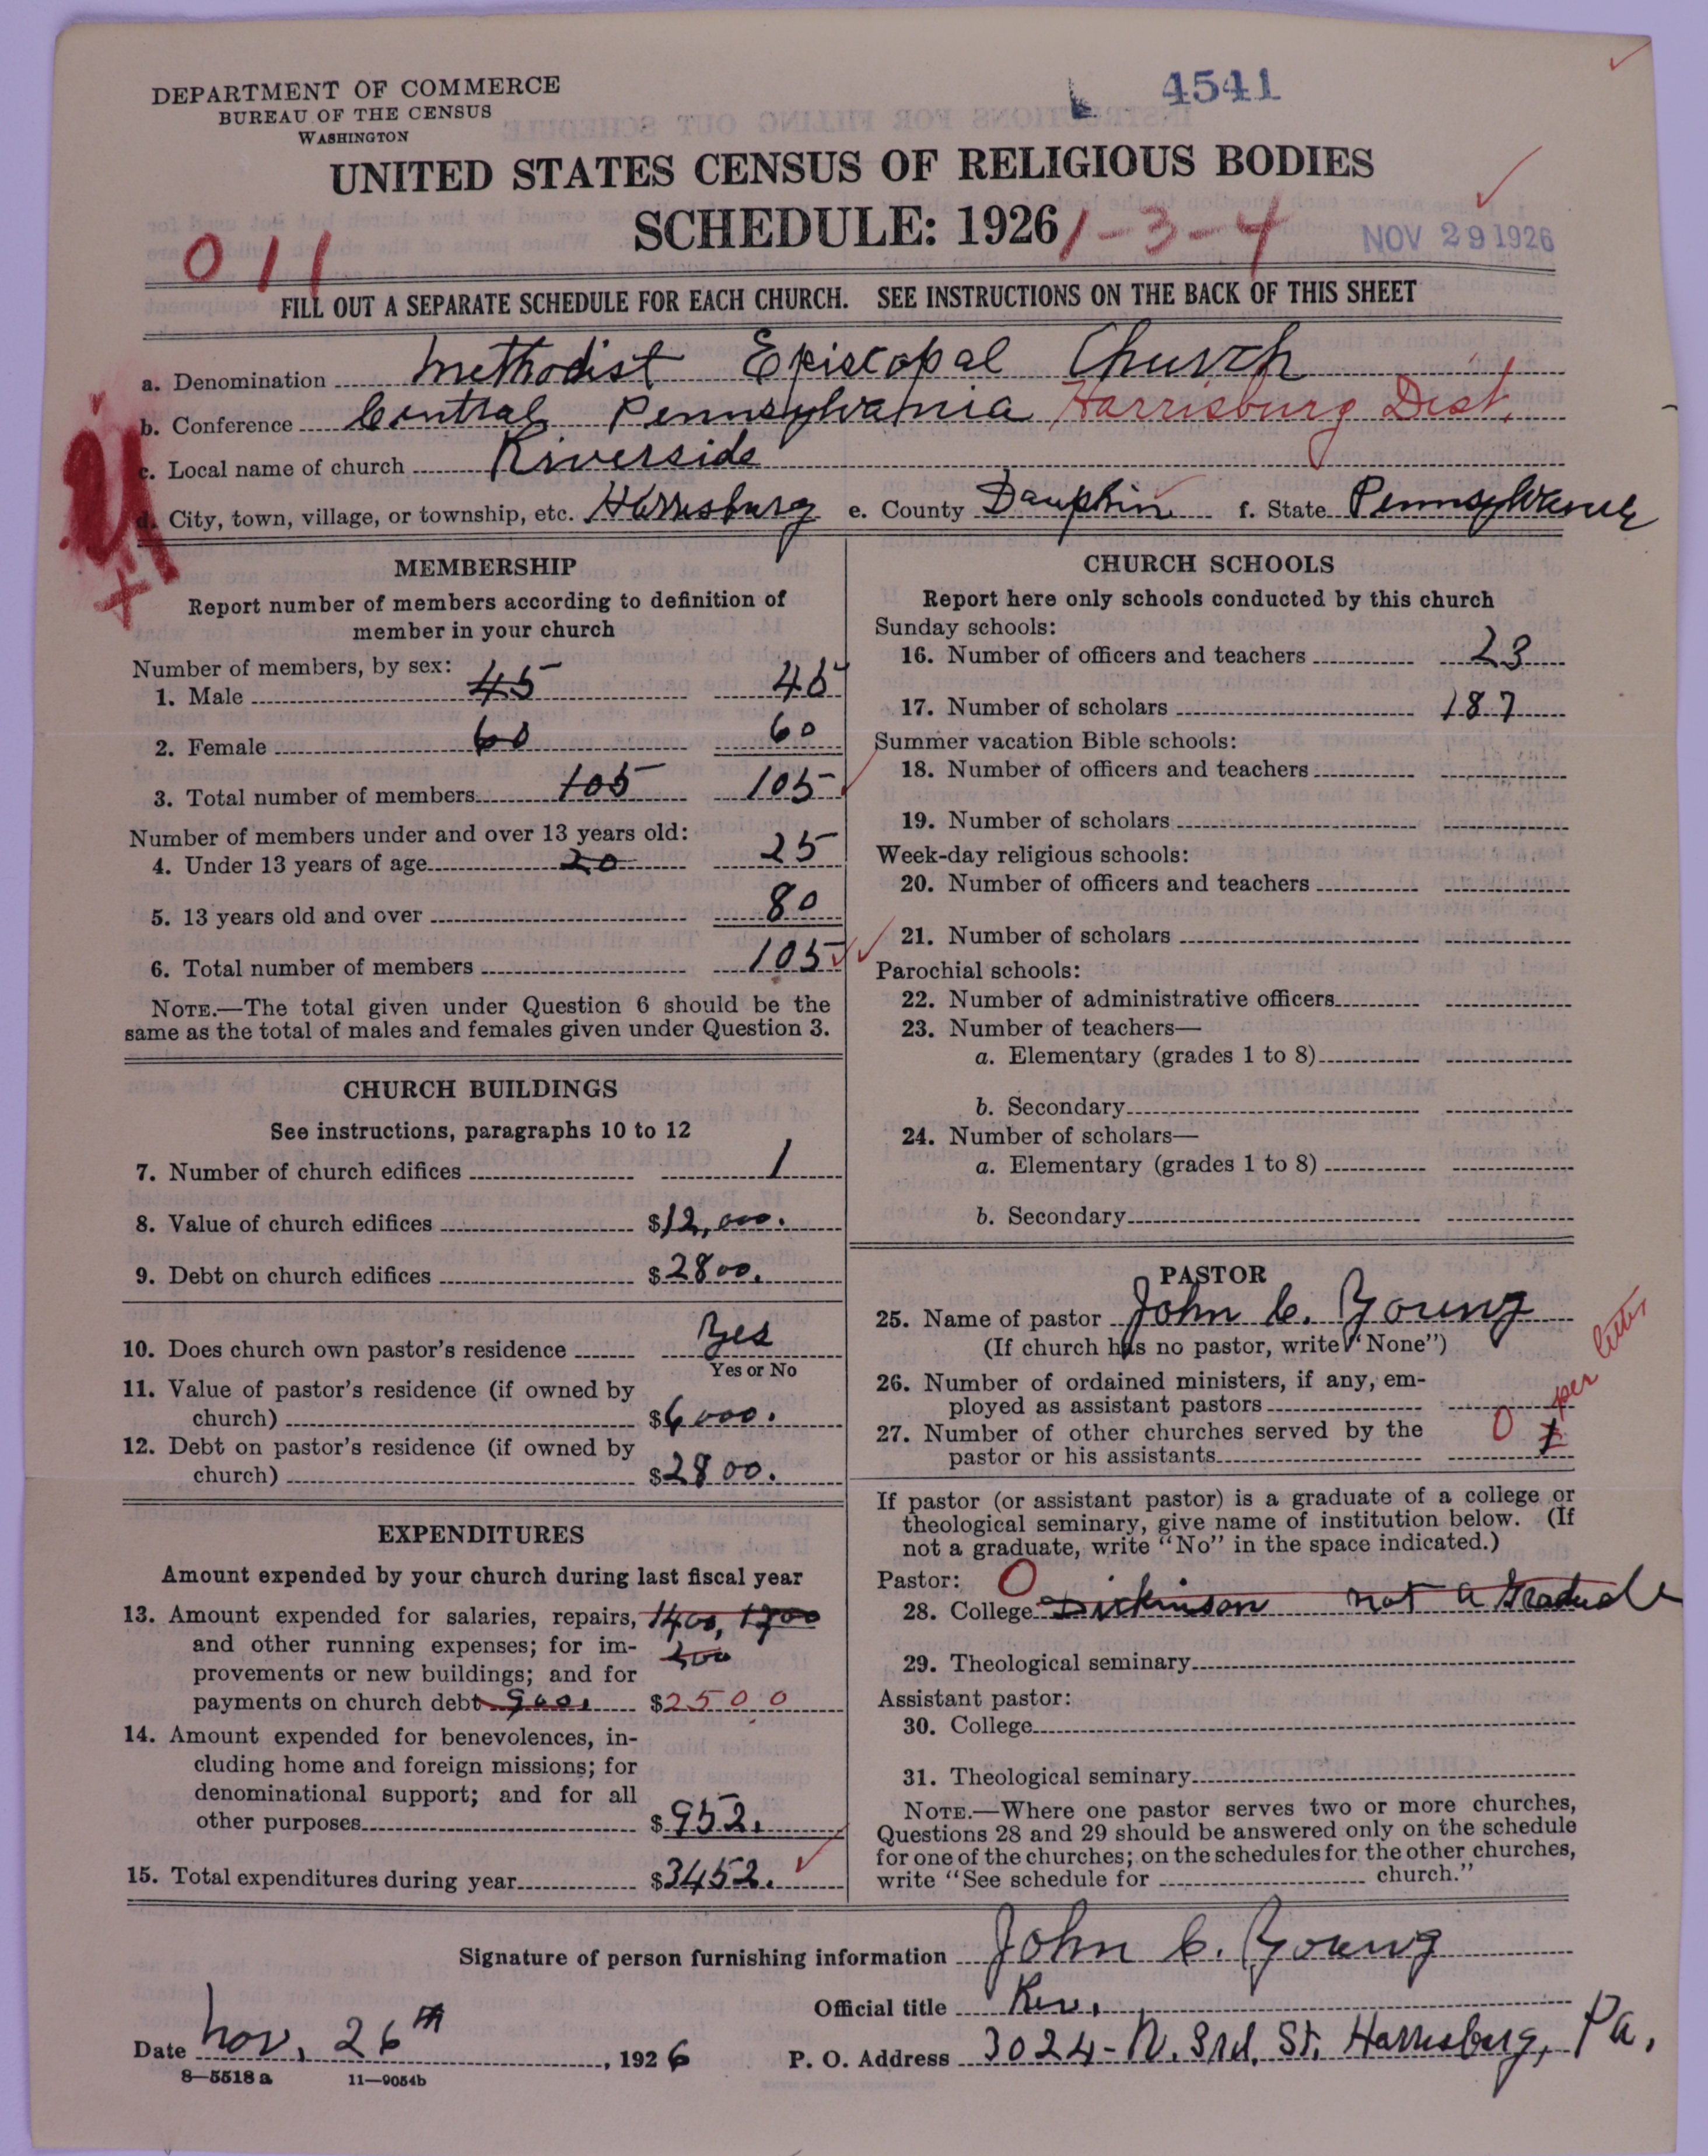 DEPARTMENT OF COMMERCE
BUREAU OF THE CENSUS
WASHINGTON
4541
UNITED STATES CENSUS OF RELIGIOUS BODIES
SCHEDULE: 1926
1-3-4
NOV 29 1926
011
FILL OUT A SEPARATE SCHEDULE FOR EACH CHURCH. SEE INSTRUCTIONS ON THE BACK OF THIS SHEET
a. Denomination Methodist Episcopal Church
b. Conference Central Pennsylvania Harrisburg Dist.
c. Local name of church Riverside
d. City, town, village, or township, etc. Harrisburg e. County Dauphin f. State Pennsylvania
MEMBERSHIP
Report number of members according to definition of
member in your church
Number of members, by sex:
1. Male 45 45
2. Female 60 60
3. Total number of members 105 105
Number of members under and over 13 years old:
4. Under 13 years of age 20 25
5. 13 years old and over 80
6. Total number of members 105
NOTE.—The total given under Question 6 should be the
same as the total of males and females given under Question 3.
CHURCH BUILDINGS
See instructions, paragraphs 10 to 12
7. Number of church edifices 1
8. Value of church edifices $12,000.
9. Debt on church edifices $2800.
10. Does church own pastor's residence Yes
Yes or No
11. Value of pastor's residence (if owned by
church) $6000.
12. Debt on pastor's residence (if owned by
church) $2800.
EXPENDITURES
Amount expended by your church during last fiscal year
13. Amount expended for salaries, repairs, 1400, 1700
and other running expenses; for im-
provements or new buildings; and for
payments on church debt 900. $2500
14. Amount expended for benevolences, in-
cluding home and foreign missions; for
denominational support; and for all
other purposes $952.
15. Total expenditures during year $3452.
CHURCH SCHOOLS
Report here only schools conducted by this church
Sunday schools:
16. Number of officers and teachers 23
17. Number of scholars 187
Summer vacation Bible schools:
18. Number of officers and teachers
19. Number of scholars
Week-day religious schools:
20. Number of officers and teachers
21. Number of scholars
Parochial schools:
22. Number of administrative officers
23. Number of teachers—
a. Elementary (grades 1 to 8)
b. Secondary
24. Number of scholars—
a. Elementary (grades 1 to 8)
b. Secondary
PASTOR
25. Name of pastor John C. Young
(If church has no pastor, write "None")
26. Number of ordained ministers, if any, em-
ployed as assistant pastors
27. Number of other churches served by the
pastor or his assistants 0 1 per letter
If pastor (or assistant pastor) is a graduate of a college or
theological seminary, give name of institution below. (If
not a graduate, write "No" in the space indicated.)
Pastor: 0
28. College Dickinson not a Graduate
29. Theological seminary
Assistant pastor:
30. College
31. Theological seminary
NOTE.—Where one pastor serves two or more churches,
Questions 28 and 29 should be answered only on the schedule
for one of the churches; on the schedules for the other churches,
write "See schedule for church."
Signature of person furnishing information John C. Young
Official title Rev.
Date Nov. 26th, 1926
P. O. Address 3024-N. 3rd. St. Harrisburg, Pa.
8—5518a 11—9054b